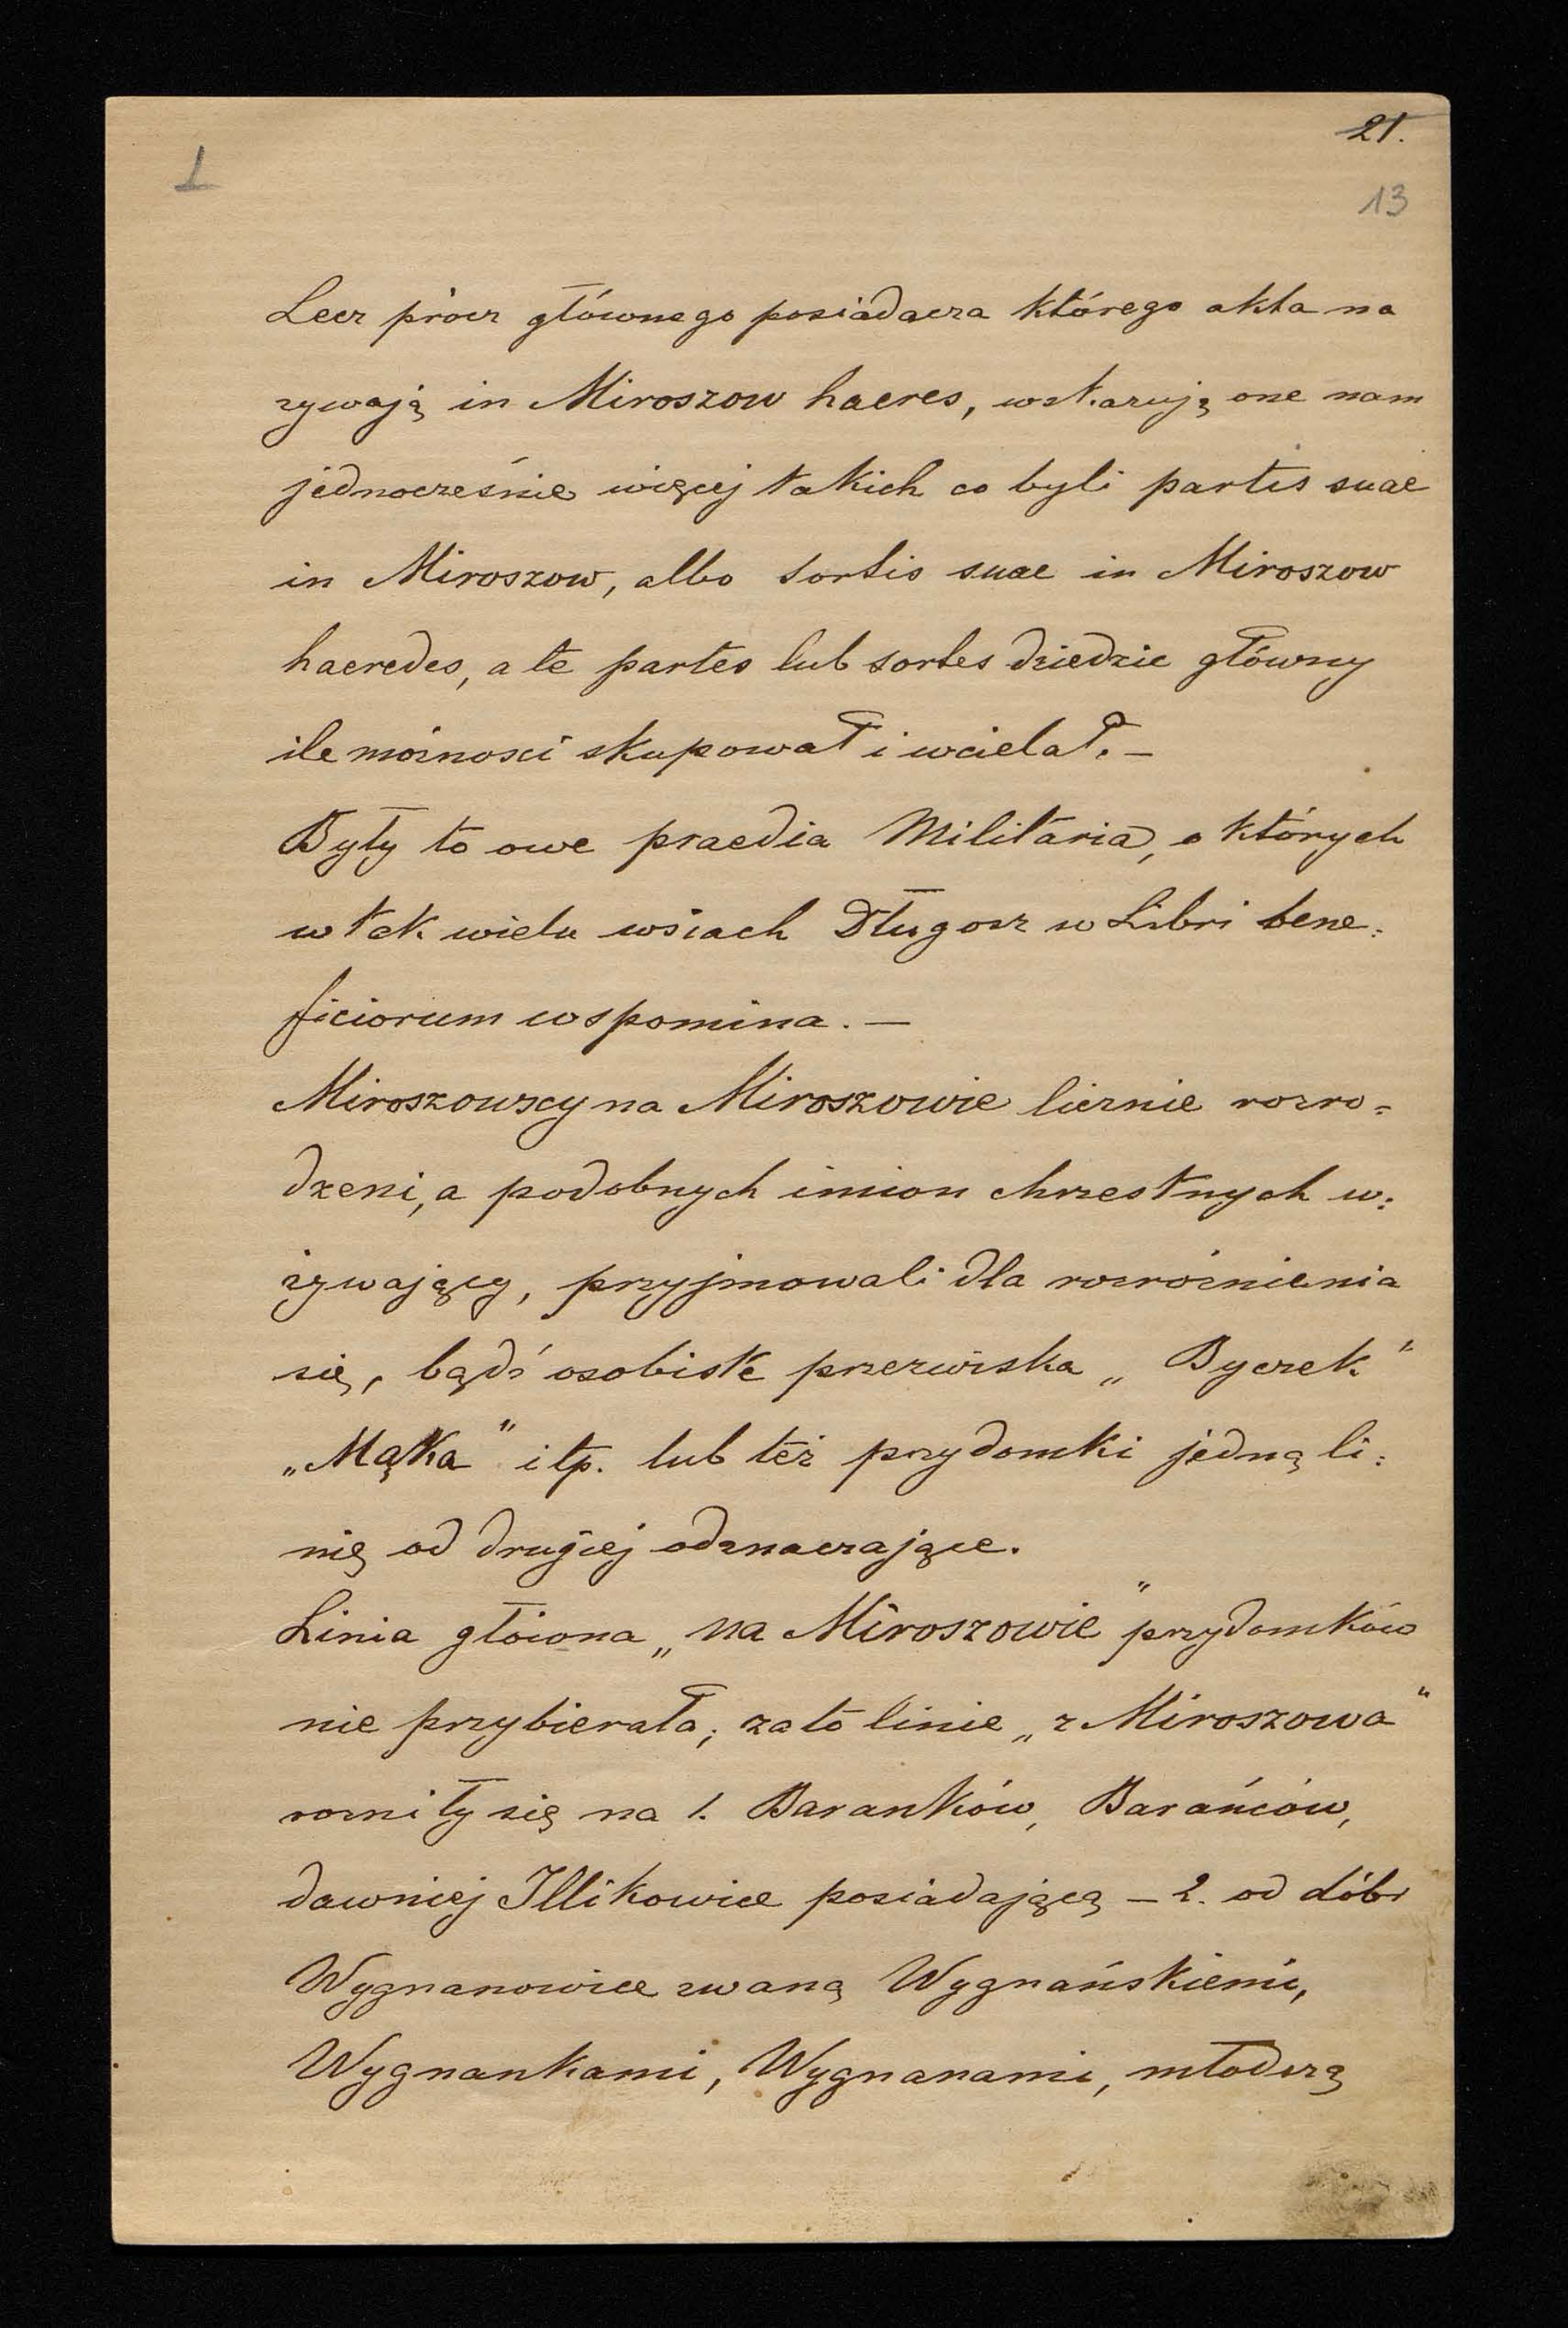 21.
1
13
Lecz prócz głównego posiadacza którego akta na
zywają in Miroszow haeres, wskazują one nam
jednocześnie więcej takich co byli partis suae
in Miroszow, albo sortis suae in Miroszow
haeredes, a te partes lub sortes dziedzic główny
ile możnosci skupował i wcielał. –
Były to owe praedia Militaria, o których
w tak wielu wsiach Długosz w Libri bene=
ficiorum wspomina. –
Miroszowscy na Miroszowie licznie rozro=
dzeni, a podobnych imion chrzestnych u=
żywający, przyjmowali dla rozróżnienia
się, bądź osobiste przezwiska „Byczek“
„Mąka“ itp. lub też przydomki jedną li=
nię od drugiej odznaczające.
Linia główna „na Miroszowie“ przydomków
nie przybierała; zato linie „z Miroszowa“
rozniły się na 1. Baranków, Barańców,
dawniej Illikowice posiadającą – 2. od dóbr
Wygnanowice zwaną Wygnańskiemi,
Wygnankami, Wygnanami, młodszą